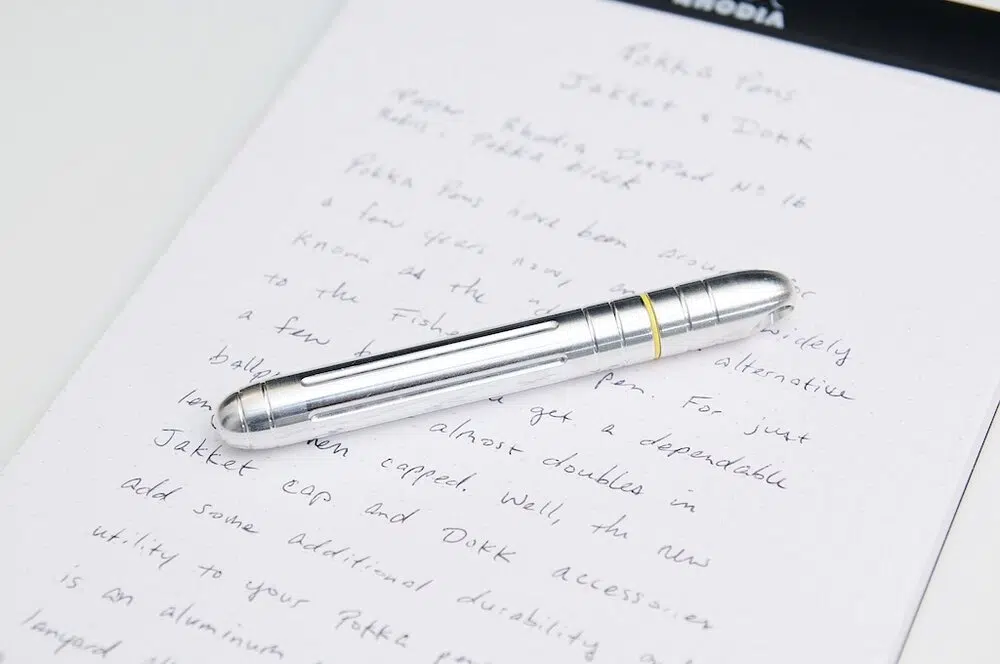 RHODIA
Pokka Pens
Jakket & Dokk
Paper: Rhodia DotPad No 16
Refill: Pokka black
Pokka Pens have been for
a few years now,
known as the widely
to the alternative
a few pen. For just
get a dependable
almost doubles in
when capped. Well, the new
Jakket cap and Dokk accessories
add some additional durability
utility to your Pokka
is an aluminum
lanyard